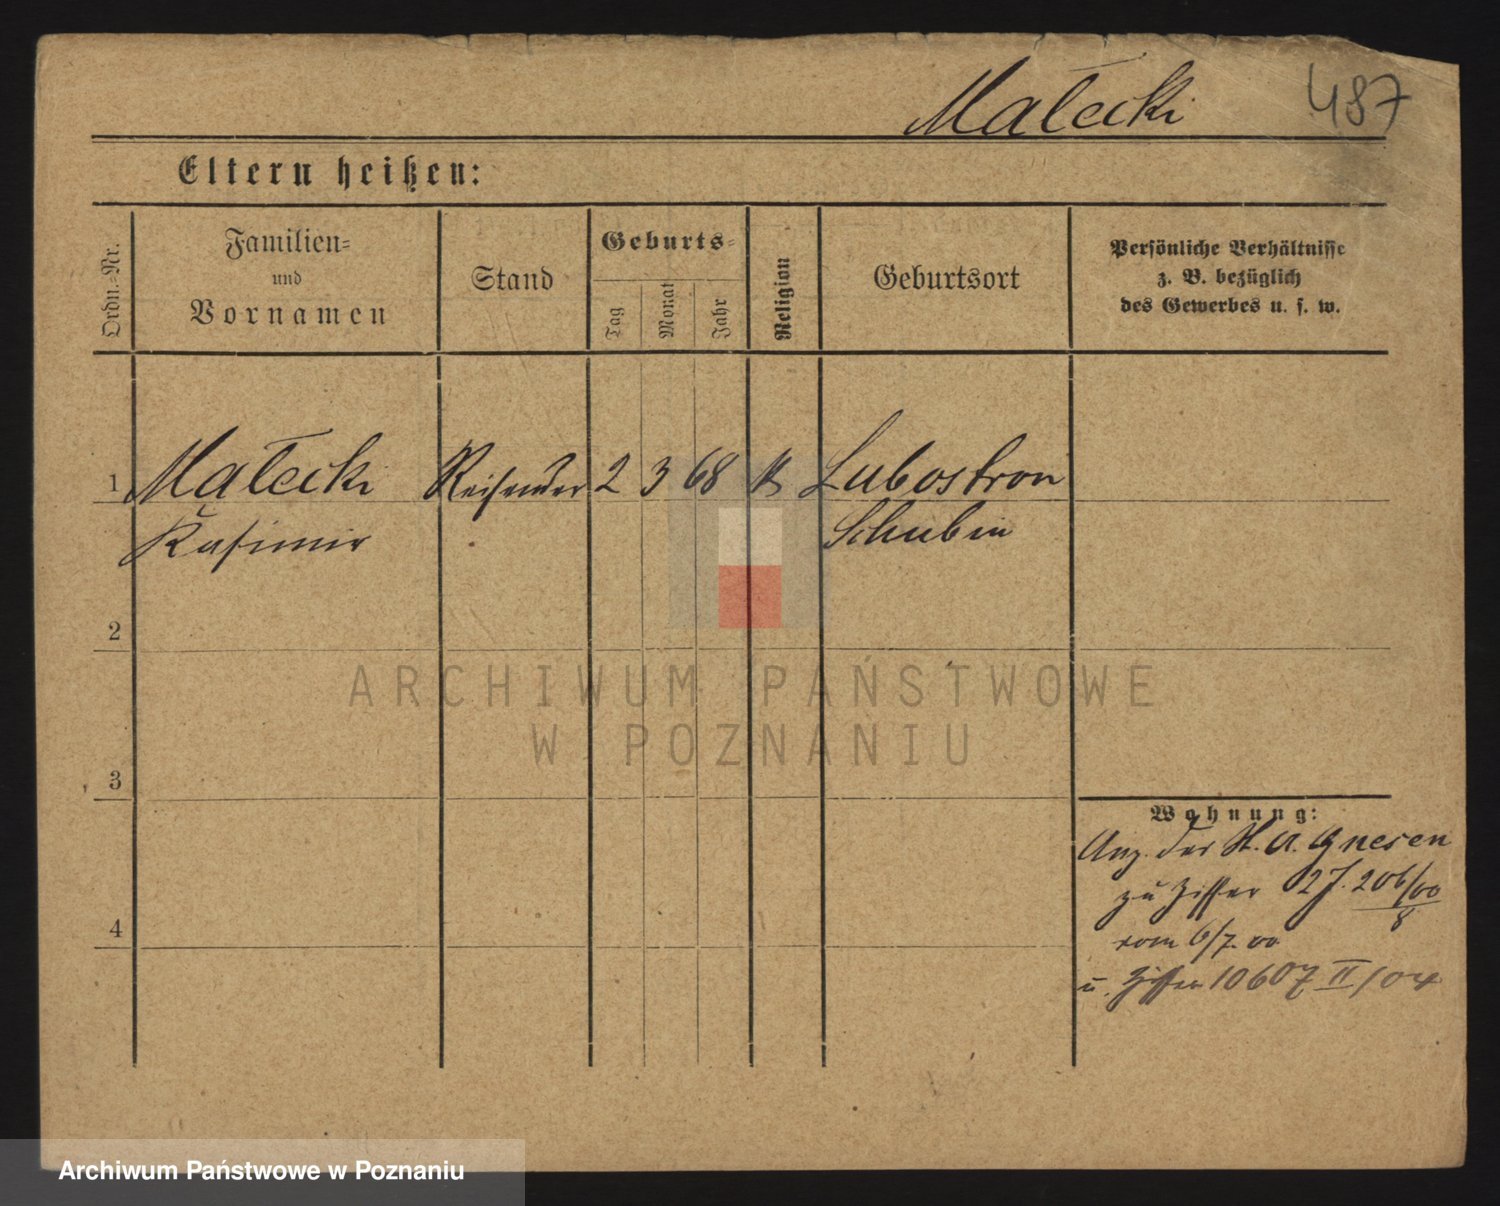 Małecki
487
Eltern heißen:
Ordn.-Nr.
Familien-
und
Vornamen
Stand
Geburts-
Tag
Monat
Jahr
Religion
Geburtsort
Persönliche Verhältnisse
z. B. bezüglich
des Gewerbes u. s. w.
1 Małecki Reisender 2 3 68 K Lubostron
Kasimir Schubin
2
3
4
Wohnung:
Anz. der St. A. Gnesen
zu Ziffer 2 J. 206/00
8
vom 6/7. 00
u. Ziffer 10607 II/04
ARCHIWUM PAŃSTWOWE
W POZNANIU
Archiwum Państwowe w Poznaniu